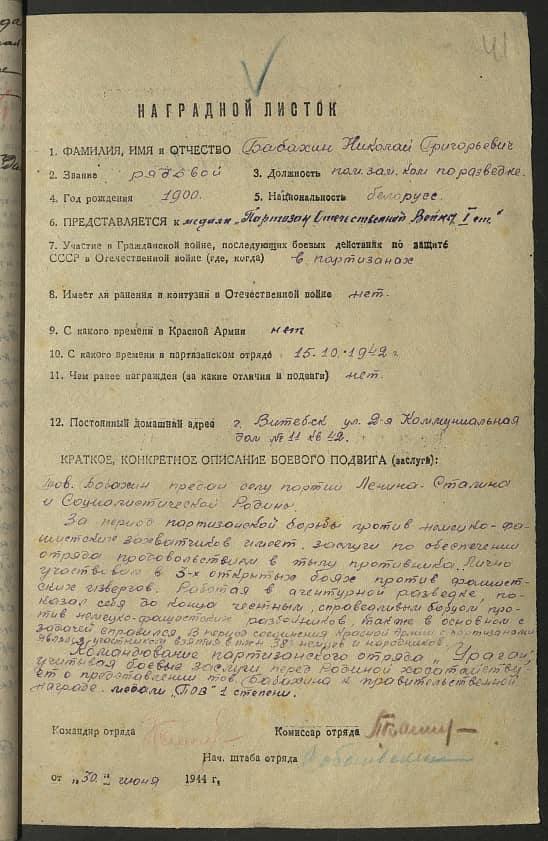 41
НАГРАДНОЙ ЛИСТОК
1. ФАМИЛИЯ, ИМЯ и ОТЧЕСТВО Бабахин Николай Григорьевич
2. Звание рядовой 3. Должность пом. зам. ком по разведке.
4. Год рождения 1900. 5. Национальность белорусс.
6. ПРЕДСТАВЛЯЕТСЯ к медали „Партизан Отечественной Войны I ст."
7. Участие в Гражданской войне, последующих боевых действиях по защите
СССР в Отечественной войне (где, когда) в партизанах
8. Имеет ли ранения и контузии в Отечественной войне нет.
9. С какого времени в Красной Армии нет
10. С какого времени в партизанском отряде 15.10.1942 г.
11. Чем ранее награжден (за какие отличия и подвиги) нет.
12. Постоянный домашний адрес г. Витебск ул. 2-я Коммунальная
дом № 11 кв 42.
КРАТКОЕ, КОНКРЕТНОЕ ОПИСАНИЕ БОЕВОГО ПОДВИГА (заслуга):
Тов. Бабахин предан делу партии Ленина-Сталина
и Социалистической Родины.
За период партизанской борьбы против немецко-фа-
шистских захватчиков имеет заслуги по обеспечении
отряда продовольствием в тылу противника. Лично
участвовал в 3-х открытых боях против фашист-
ских извергов. Работая в агентурной разведке, по-
казал себя до конца честным, справедливым борцом про-
тив немецко-фашистских разбойников, также в основном с
задачей справился. В период соединения Красной Армии с партизанами
являлся участником взятия в плен 38 немцев и народников.
Командование партизанского отряда „Ураган"
учитывая боевые заслуги перед Родиной ходатайству-
ет о представлении тов. Бабахина к правительственной
награде - медали „ПОВ" 1 степени.
Командир отряда Комиссар отряда
Нач. штаба отряда
от „30" июня 1944 г.